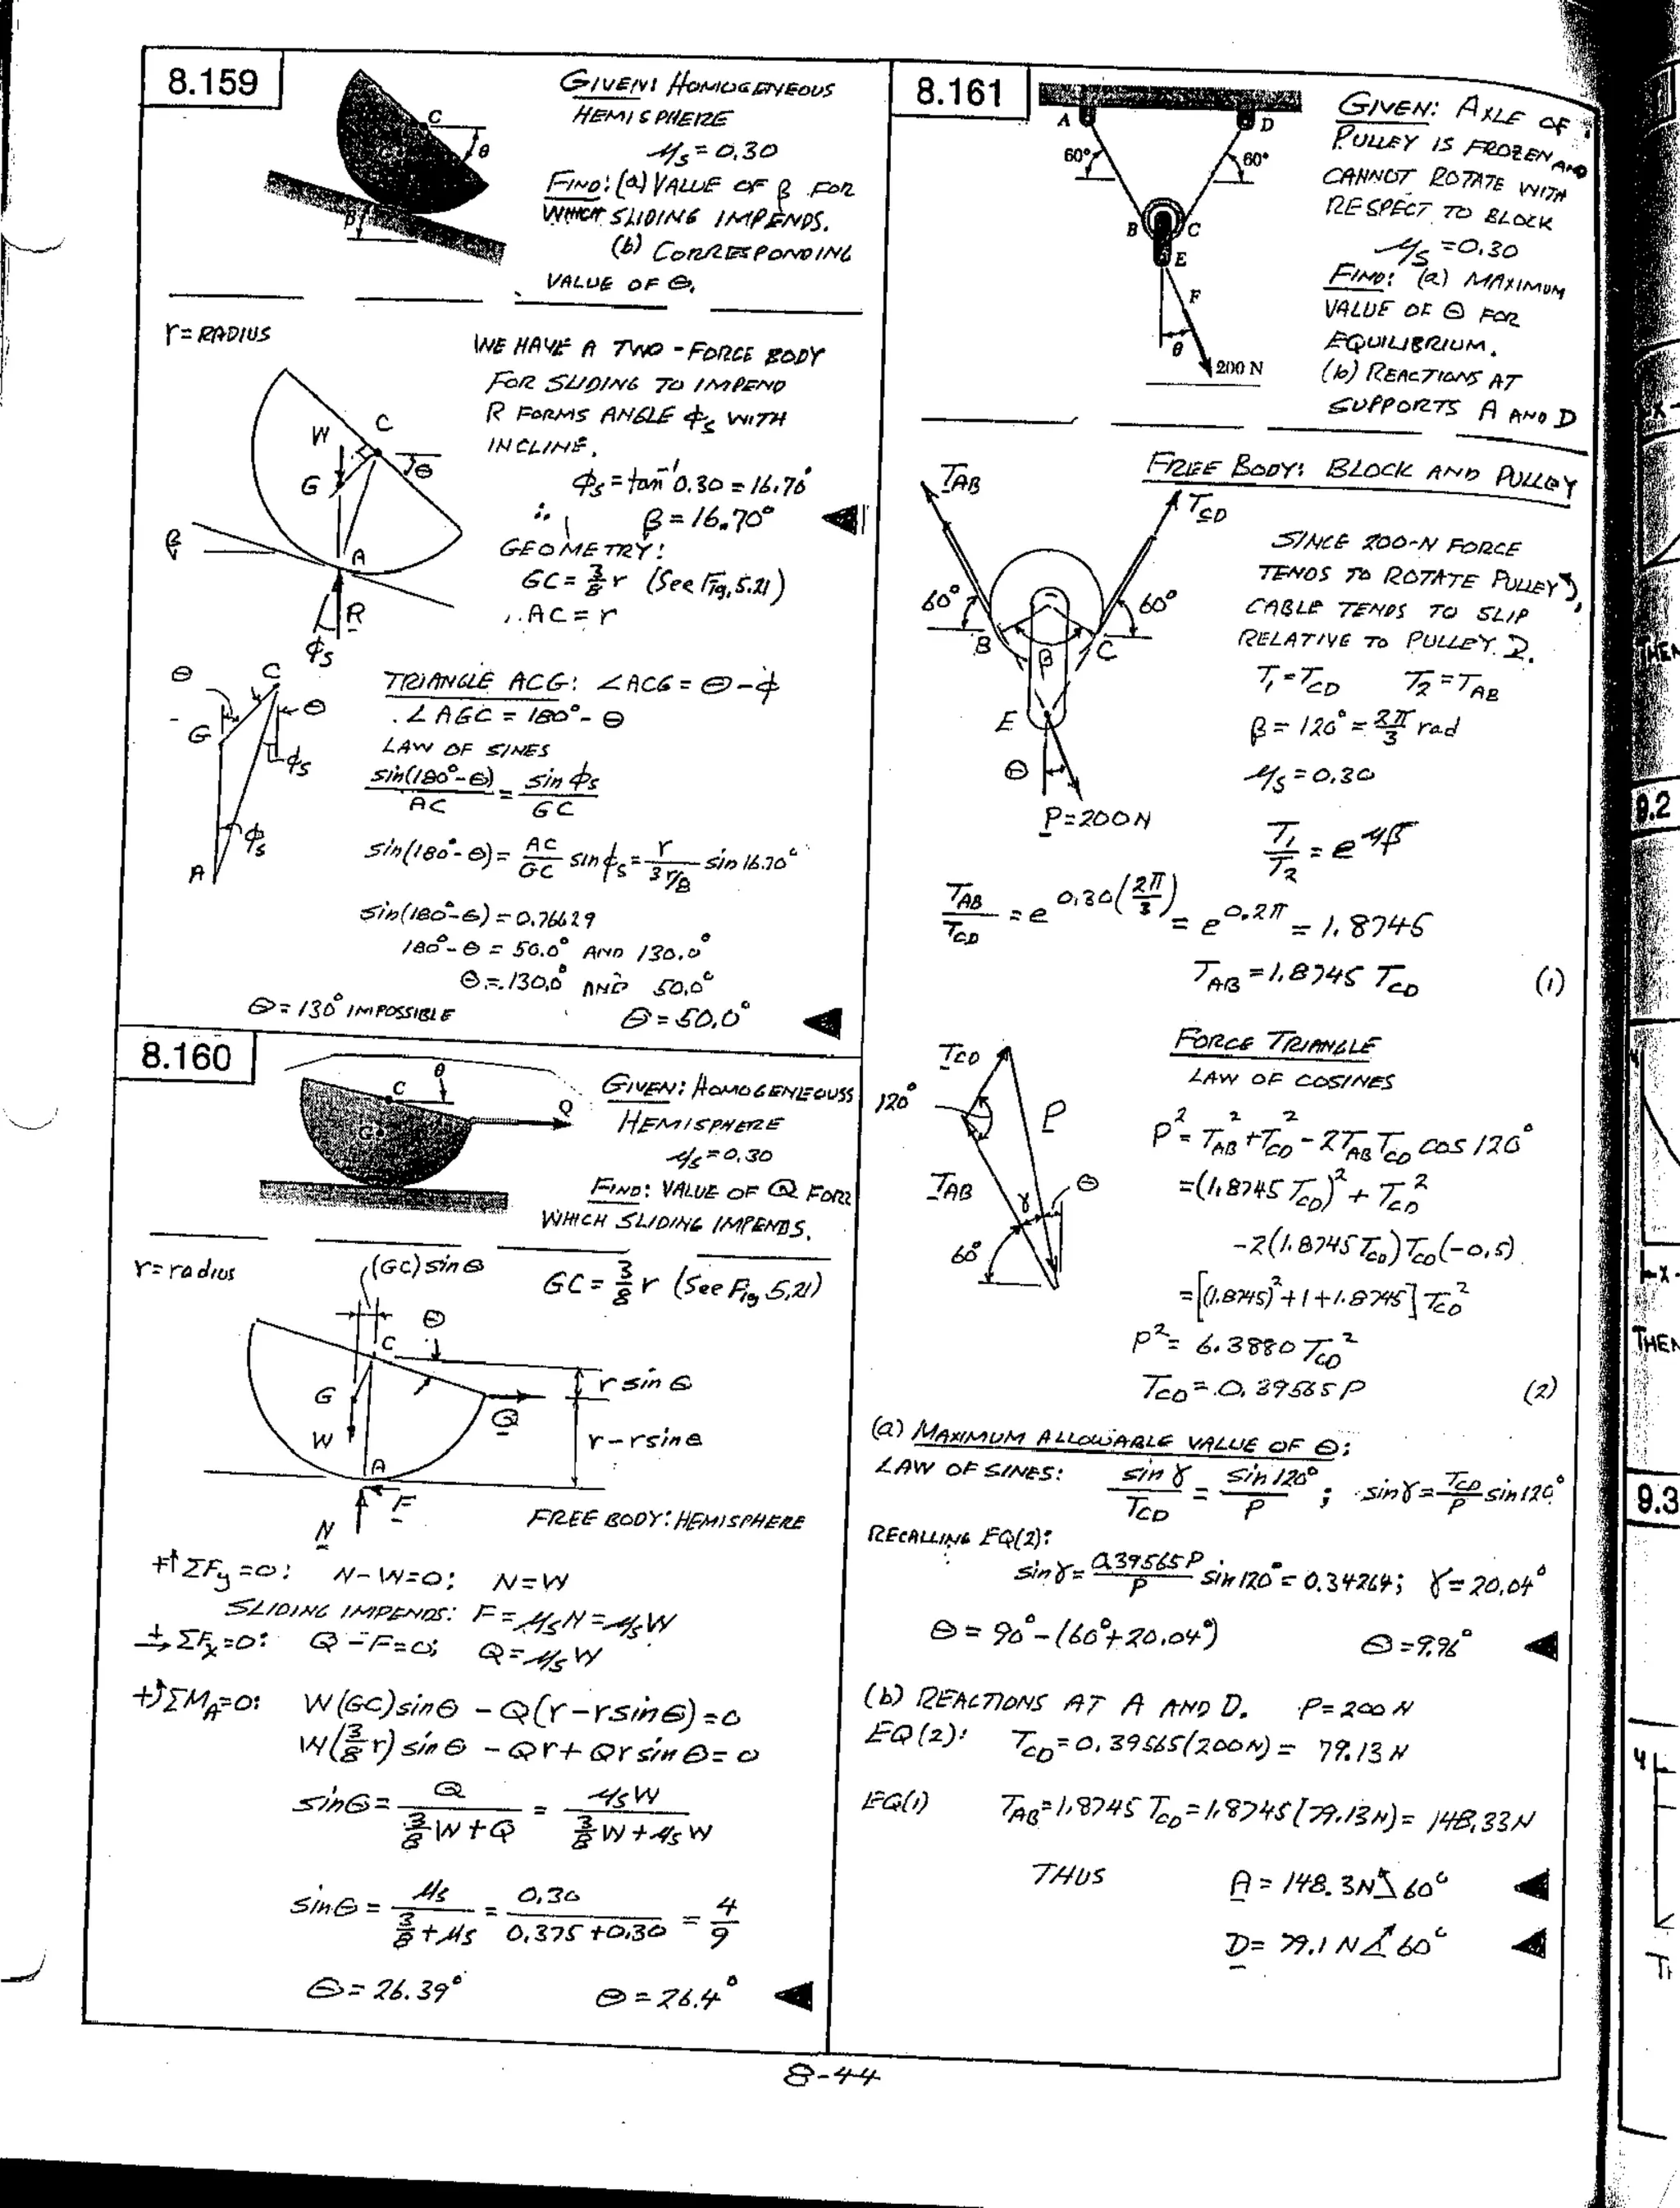 8.159
GIVEN: HOMOGENEOUS
HEMISPHERE
μs = 0.30
FIND: (a) VALUE OF β FOR
WHICH SLIDING IMPENDS.
(b) CORRESPONDING
VALUE OF θ.
C
θ
G
β
r = RADIUS
WE HAVE A TWO-FORCE BODY
FOR SLIDING TO IMPEND
R FORMS ANGLE ϕs WITH
INCLINE.
ϕs = tan⁻¹ 0.30 = 16.70°
∴ β = 16.70°
GEOMETRY:
GC = 3/8 r (See Fig. 5.21)
AC = r
W
C
G
θ
β
A
R
ϕs
θ
C
θ
G
ϕs
ϕs
A
TRIANGLE ACG: ∠ACG = θ - ϕ
∠AGC = 180° - θ
LAW OF SINES
sin(180°-θ)/AC = sin ϕs/GC
sin(180°-θ) = AC/GC sin ϕs = r/(3r/8) sin 16.70°
sin(180°-θ) = 0.76629
180°-θ = 50.0° AND 130.0°
θ = 130.0° AND 50.0°
θ = 130° IMPOSSIBLE θ = 50.0°
8.160
C
θ
G
Q
GIVEN: HOMOGENEOUSS
HEMISPHERE
μs = 0.30
FIND: VALUE OF Q FOR
WHICH SLIDING IMPENDS.
r = radius
(GC) sin θ
GC = 3/8 r (See Fig 5.21)
θ
C
G
W
Q
r sin θ
r - r sin θ
A
F
N
FREE BODY: HEMISPHERE
+↑ΣFy = 0: N - W = 0; N = W
SLIDING IMPENDS: F = μsN = μsW
+→ ΣFx = 0: Q - F = 0; Q = μsW
+↺ΣMA = 0: W(GC) sin θ - Q(r - r sin θ) = 0
W(3/8 r) sin θ - Qr + Qr sin θ = 0
sin θ = Q/(3/8 W + Q) = μsW/(3/8 W + μsW)
sin θ = μs/(3/8 + μs) = 0.30/(0.375 + 0.30) = 4/9
θ = 26.39° θ = 26.4°
8.161
A
D
60°
60°
B
C
E
F
θ
200 N
GIVEN: AXLE OF
PULLEY IS FROZEN AND
CANNOT ROTATE WITH
RESPECT TO BLOCK
μs = 0.30
FIND: (a) MAXIMUM
VALUE OF θ FOR
EQUILIBRIUM.
(b) REACTIONS AT
SUPPORTS A AND D
FREE BODY: BLOCK AND PULLEY
TAB
TCD
60°
60°
B
β
C
E
θ
P = 200 N
SINCE 200-N FORCE
TENDS TO ROTATE PULLEY ↺,
CABLE TENDS TO SLIP
RELATIVE TO PULLEY ↻.
T1 = TCD T2 = TAB
β = 120° = 2π/3 rad
μs = 0.30
T1/T2 = e^μβ
TAB/TCD = e^0.30(2π/3) = e^0.2π = 1.8745
TAB = 1.8745 TCD (1)
FORCE TRIANGLE
LAW OF COSINES
TCD
120°
P
TAB
γ
θ
60°
P² = TAB² + TCD² - 2TAB TCD cos 120°
= (1.8745 TCD)² + TCD²
-2(1.8745 TCD) TCD(-0.5)
= [(1.8745)² + 1 + 1.8745] TCD²
P² = 6.3880 TCD²
TCD = 0.39565 P (2)
(a) MAXIMUM ALLOWABLE VALUE OF θ:
LAW OF SINES: sin γ/TCD = sin 120°/P ; sin γ = TCD/P sin 120°
RECALLING EQ(2):
sin γ = 0.39565P/P sin 120° = 0.34264; γ = 20.04°
θ = 90° - (60° + 20.04°) θ = 9.96°
(b) REACTIONS AT A AND D. P = 200 N
EQ(2): TCD = 0.39565(200N) = 79.13 N
EQ(1) TAB = 1.8745 TCD = 1.8745(79.13N) = 148.33N
THUS A = 148.3N 60°
D = 79.1 N 60°
8-44
THEN
9.2
x
THEN
9.3
4